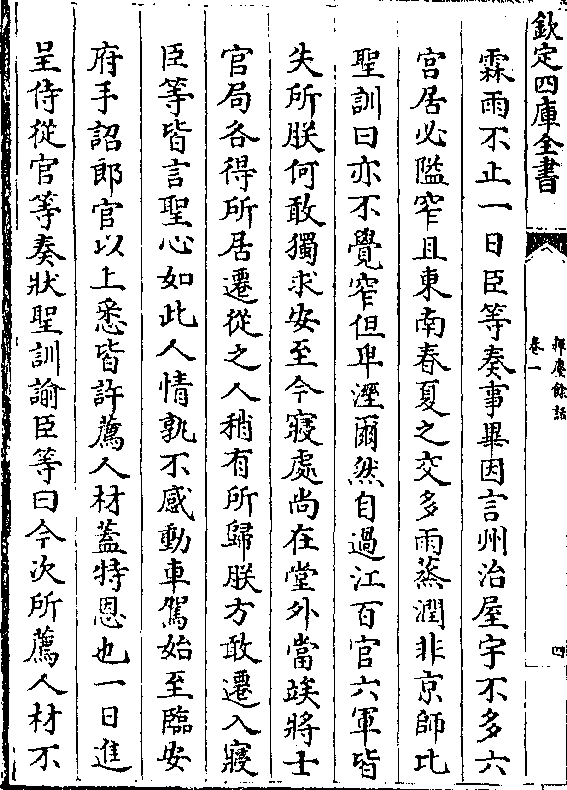 欽定四庫全書
揮麈餘話
卷一
四
霖雨不止一日臣等奏事畢因言州治屋宇不多六
宫居必隘窄且東南春夏之交多雨蒸潤非京師比
聖訓曰亦不覺窄但卑溼爾然自過江百官六軍皆
失所朕何敢獨求安至今寢處尚在堂外當竢將士
官局各得所居遷從之人稍有所歸朕方敢遷入寢
臣等皆言聖心如此人情孰不感動車駕始至臨安
府手詔郎官以上悉皆許薦人材蓋特恩也一日進
呈侍從官等奏狀聖訓諭臣等曰今次所薦人材不